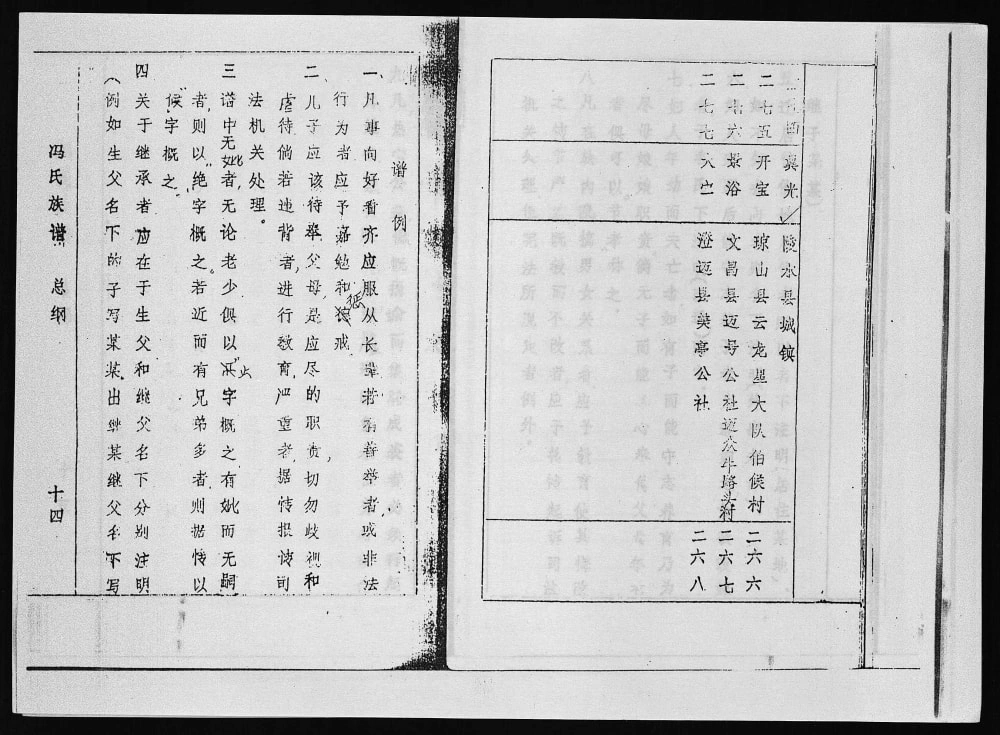 奠光 陵水县城镇
二七五 开宝 琼山县云龙墟大队伯候村 二六六
二七六 景浴 文昌县迈号公社迈众牛路头村 二六七
二七七 大亡 澄迈县美亭公社 二六八
谱例
一凡事向好看齐应服从长辈若有善举者或非法
行为者应予嘉勉和惩戒
二儿子应该待举父母是应尽的职责切勿歧视和
虐待倘若违背者，进行教育严重者据情报请司
法机关处理。
三谱中无妣者，无论老少俱以“止”字概之有妣而无嗣
者，则以“绝”字概之。若近而有兄弟多者则据情以
“候”字概之。
四关于继承者应在于生父和继父名下分别注明
（例如生父名下的子写某某。出继某继父名下写
冯氏族谱 总纲 十四